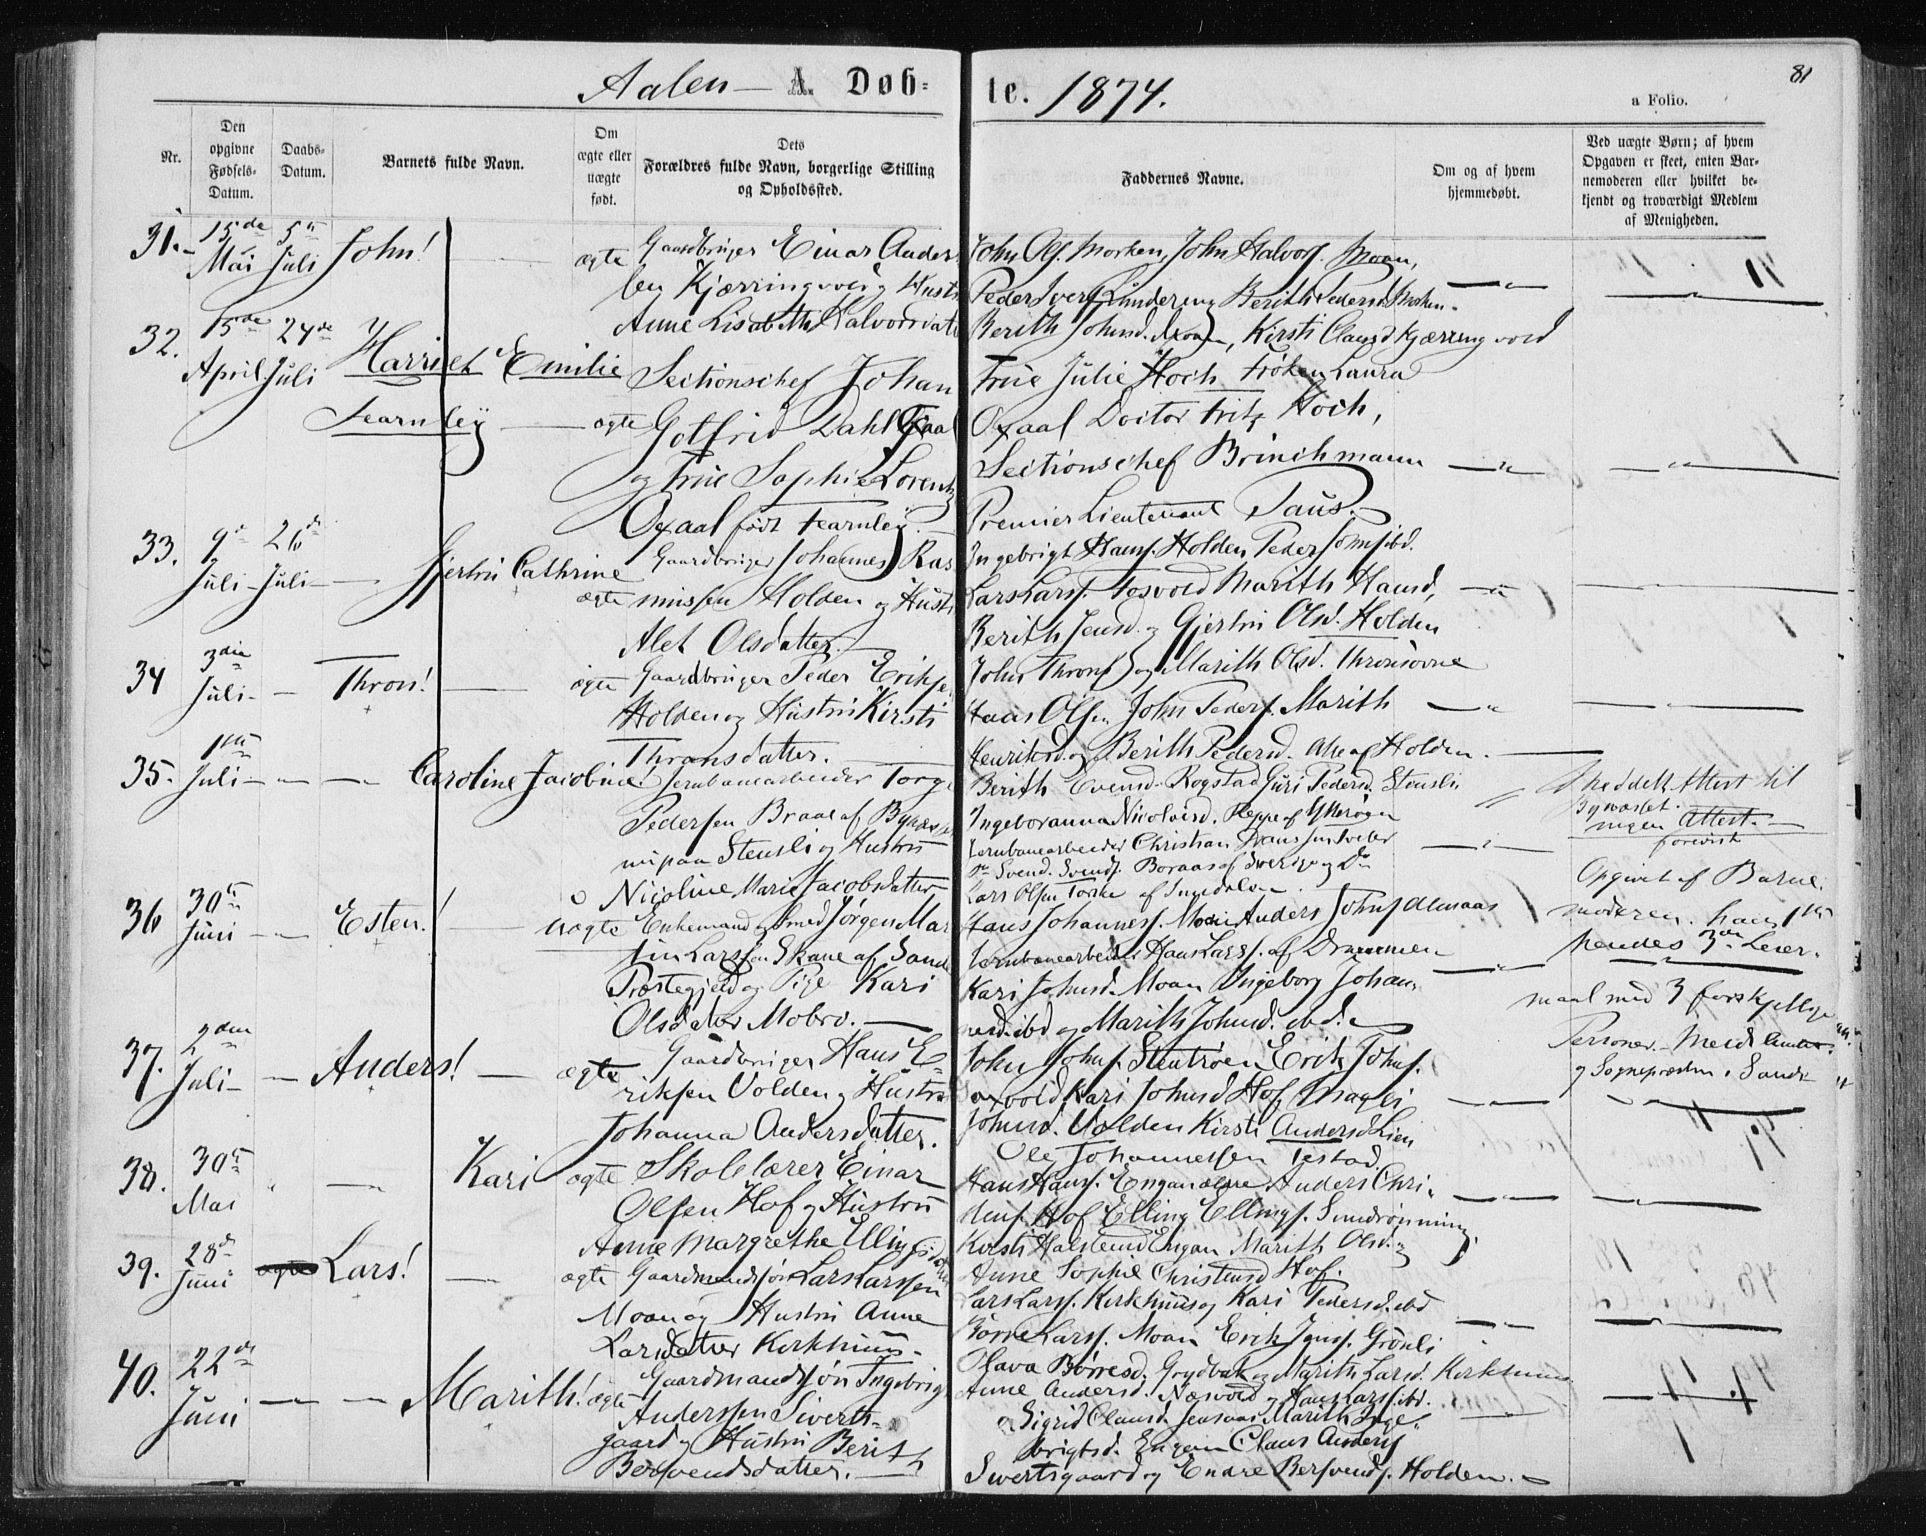 Aalen — A. Døb=
te. 1874.
81
a Folio.
Nr.
Den opgivne Fødsels-Datum.
Daabs-Datum.
Barnets fulde Navn.
Om ægte eller uægte født.
Dets Forældres fulde Navn, borgerlige Stilling og Opholdssted.
Faddernes Navne.
Om og af hvem hjemmedøbt.
Ved uægte Børn; af hvem Opgaven er skeet, enten Barnemoderen eller hvilket bekjendt og troværdigt Medlem af Menigheden.
31. 15de Mai 5te Juli John! ægte Gaardbruger Einar Anders
sen Kjærringvold og Hustr
Anne Lisabeth Halvorsdatt
John Ols. Morken, John Halvors. Moan,
Peder Ivers. og Berith Pedersd. Morken.
Berith Johnsd. Moan, Kirsti Clausd Kjærringvold
32. 15de April 24de Juli Harriet Emilie
Fearnley ægte
Sectionschef Johan
Gotfrid Dahl Oxaal
og Frue Sophie Lorentz
Oxaal født Fearnley.
Frue Julie Hoch, Frøken Laura
Oxaal Doctor Fritz Hoch,
Sectionschef Brinchmann
Premier Lieutenant Paus.
33. 9de Juli 26de Juli Gjertru Cathrine
ægte Gaardbruger Johannes Ras
mussen Holden og Hustr
Alet Olsdatter.
Ingebrigt Hans. Holden Peder Jons. ibd.
Lars Lars. Fosvold Marith Hansd,
Berith Jensd. og Gjertru Olsd. Holden
34 3die Juli Thron! ægte Gaardbruger Peder Erikse
Holden og Hustru Kirsti
Thronsdatter.
John Throns. og Marith Olsd. Thronsovne
Hans Olsen, John Peders. Marith
Henriksd. og Berith Pedersd. Alle af Holden.
35. 1ste Juli Caroline Jacobine! Jernbanearbeider Torge
Pedersen Braae af Bynæsset
nu paa Stensli og Hustru
Nicoline Marie Jacobsdatter
Berith Evensd. Rogstad Guri Pedersd. Stensli
Ingeboranna Nicolaisd. Reppe af Ytterøen
Jernbanearbeider Christian Hanssen
Svend. Svends. Boraas af Sverige og Do
Lars Olsen Torske af
Meddelt Attest til
Bynæsset.
ingen Attest.
forevist
36 30te Juni Esten! uægte Enkemand og Smed Jørgen Mar
tin Larssen Skane af Sande
Præstegjeld og Pige Kari
Olsdatter Mobro.
Hans Johannes. Mo Anders Johns. Almaas
Jernbanearbeider Hans Lars. af Drammen
Kari Johnsd. Moan Ingeborg Johan
nesd. ibd og Marith Johnsd. ibd.
Opgivet af Barne
moderen. hans 1ste
hendes 3die Leier
maal med 3 forskjellige
Personer. Meldt
og Sognepræsten i Sande
37. 2den Juli Anders! ægte Gaardbruger Hans E
riksen Volden og Hustru
Johanna Andersdatter.
John Johns. Stentrøen Erik Johns.
Kari Johnsd Hof Magli
Johnsd. Volden Kirsti Andersd Lien
Ole Johannessen
38. 30te Mai Kari ægte Skolelærer Einar
Olsen Hof og Hustru
Anne Margrethe Ellingsdatter
Hans Hans. Engan Anders Chri
stens. Hof Elling Ellings.
Kirsti Halstensd Engan Marith Olsd. og
Anne Sophie Christensd Hof.
39. 28de Juni Lars! ægte Gaardmandssøn Lars Larssen
Moan og Hustru Anne
Larsdatter Kirkhuus.
Lars Lars. Kirkhuus og Kari Pedersd. ibd
Børre Lars. Moan Erik Jons. Grønli
Olava Børresd. Grydbak og Marith Larsd. Kirkhuus
40. 22de Juni Marith! ægte Gaardmandssøn Ingebrigt
Anderssen Siverts-
gaard og Hustru Berith
Bersvendsdatter.
Anne Andersd. Næsvold og Hans Lars. ibd.
Sigrid Clausd. Jensaas Marith Inge
brigtsd. Engan Claus Anders
Sivertsgaard og Endre Bersvends. Holden.